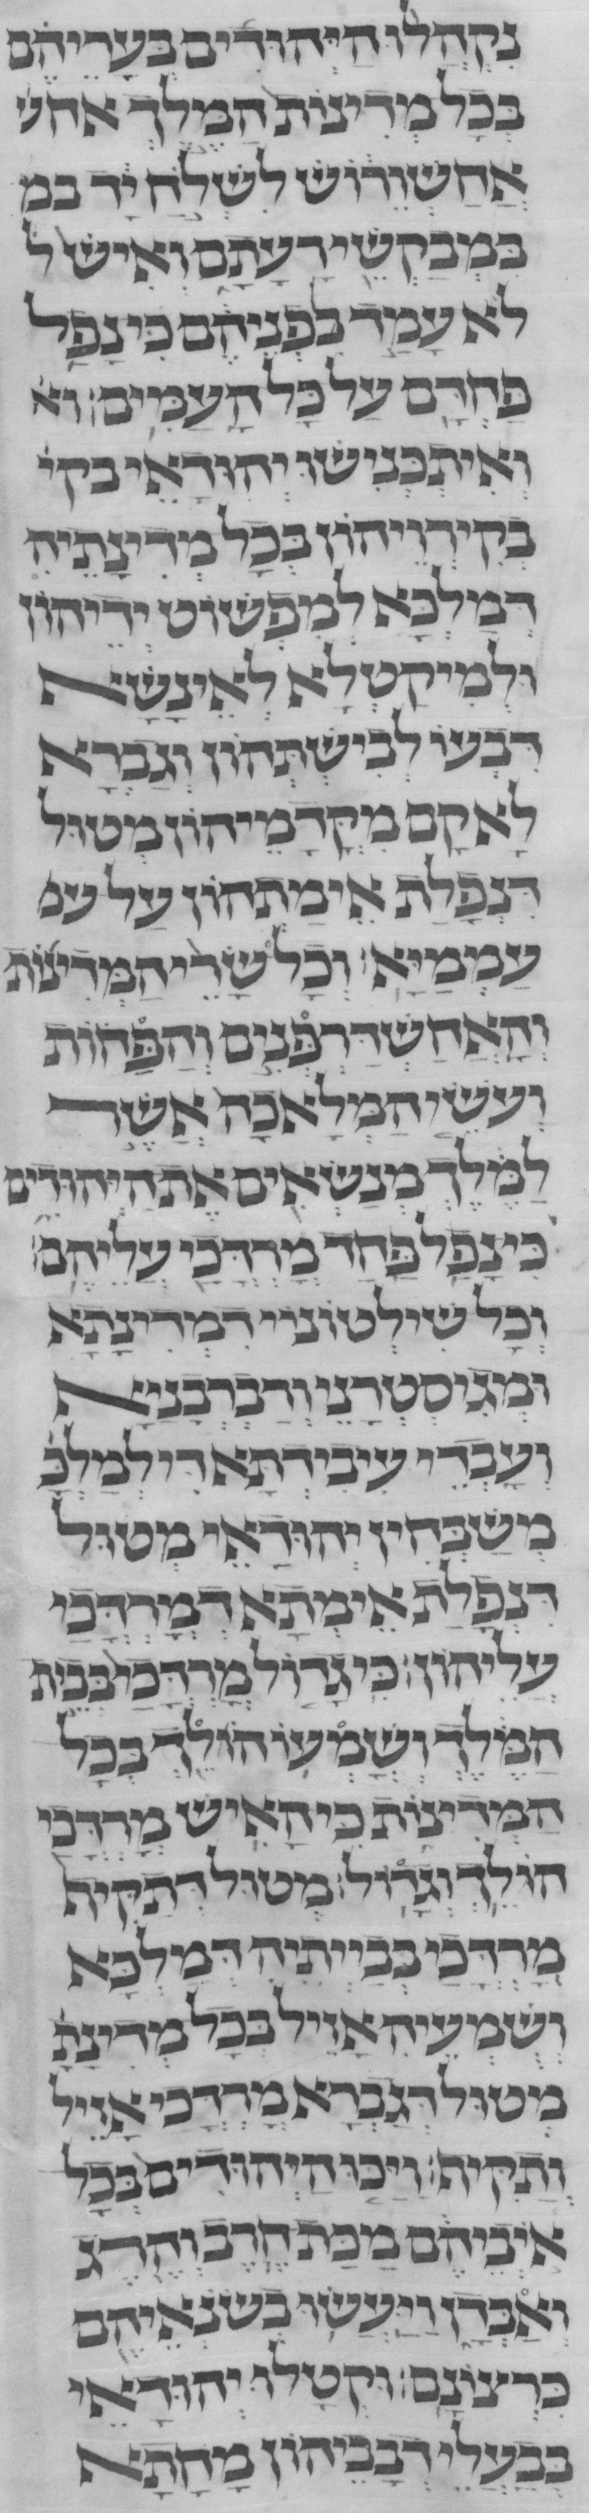 נִקְהֲלוּ הַיְּהוּדִים בְּעָרֵיהֶם
בְּכָל מְדִינוֹת הַמֶּלֶךְ אחש
אֲחַשְׁוֵרוֹשׁ לִשְׁלֹחַ יָד במ
בִּמְבַקְשֵׁי רָעָתָם וְאִישׁ ל
לֹא עָמַד בִּפְנֵיהֶם כִּי נָפַל
פַּחְדָּם עַל כָּל הָעַמִּים׃ וא
וְאִיתְכְּנִישׁוּ יְהוּדָאֵי בקי
בְּקִירְוֵיהוֹן בְּכָל מְדִינָתֵיהּ
דְמַלְכָּא לְמִפְשׁוֹט יְדֵיהוֹן
וּלְמִיקְטְלָא לְאֵינָשָׁא
דִּבְעוֹ לְבִישַׁתְהוֹן וְגַבְרָא
לָא קָם מִקֳּדָמֵיהוֹן מְטוּל
דִּנְפָלַת אֵימַתְהוֹן עַל עמ
עַמְמַיָּא׃ וְכָל שָׂרֵי הַמְּדִינוֹת
וְהָאֲחַשְׁדַּרְפְּנִים וְהַפַּחוֹת
וְעֹשֵׂי הַמְּלָאכָה אֲשֶׁר
לַמֶּלֶךְ מְנַשְּׂאִים אֶת הַיְּהוּדִים
כִּי נָפַל פַּחַד מָרְדֳּכַי עֲלֵיהֶם׃
וְכָל שִׁילְטוֹנֵי דִמְדִינָתָא
וּמְגִיסְטְרָנֵי וְרַבְרְבָנַיָּא
וְעָבְדֵי עִיבִידְתָּא דִּי לְמַלְכָּ
מְשַׁבְּחִין יְהוּדָאֵי מְטוּל
דִּנְפָלַת אֵימְתָא דְמָרְדֳּכַי
עֲלֵיהוֹן׃ כִּי גָדוֹל מָרְדֳּכַי בְּבֵית
הַמֶּלֶךְ וְשָׁמְעוֹ הוֹלֵךְ בְּכָל
הַמְּדִינוֹת כִּי הָאִישׁ מָרְדֳּכַי
הוֹלֵךְ וְגָדוֹל׃ מְטוּל דְּתַקִּיף
מָרְדֳּכַי בְּבֵייתֵיהּ דְּמַלְכָּא
וְשִׁמְעֵיהּ אָזֵיל בְּכָל מְדִינָתָ
מְטוּל דְּגַבְרָא מָרְדֳּכַי אָזֵיל
וְתַקִּיף׃ וַיַּכּוּ הַיְּהוּדִים בְּכָל
אֹיְבֵיהֶם מַכַּת חֶרֶב וְהֶרֶג
וְאַבְדָן וַיַּעֲשׂוּ בְשֹׂנְאֵיהֶם
כִּרְצוֹנָם׃ וּקְטָלוּ יְהוּדָאֵי
בְּבַעֲלֵי דְבָבֵיהוֹן מַחֲתָא